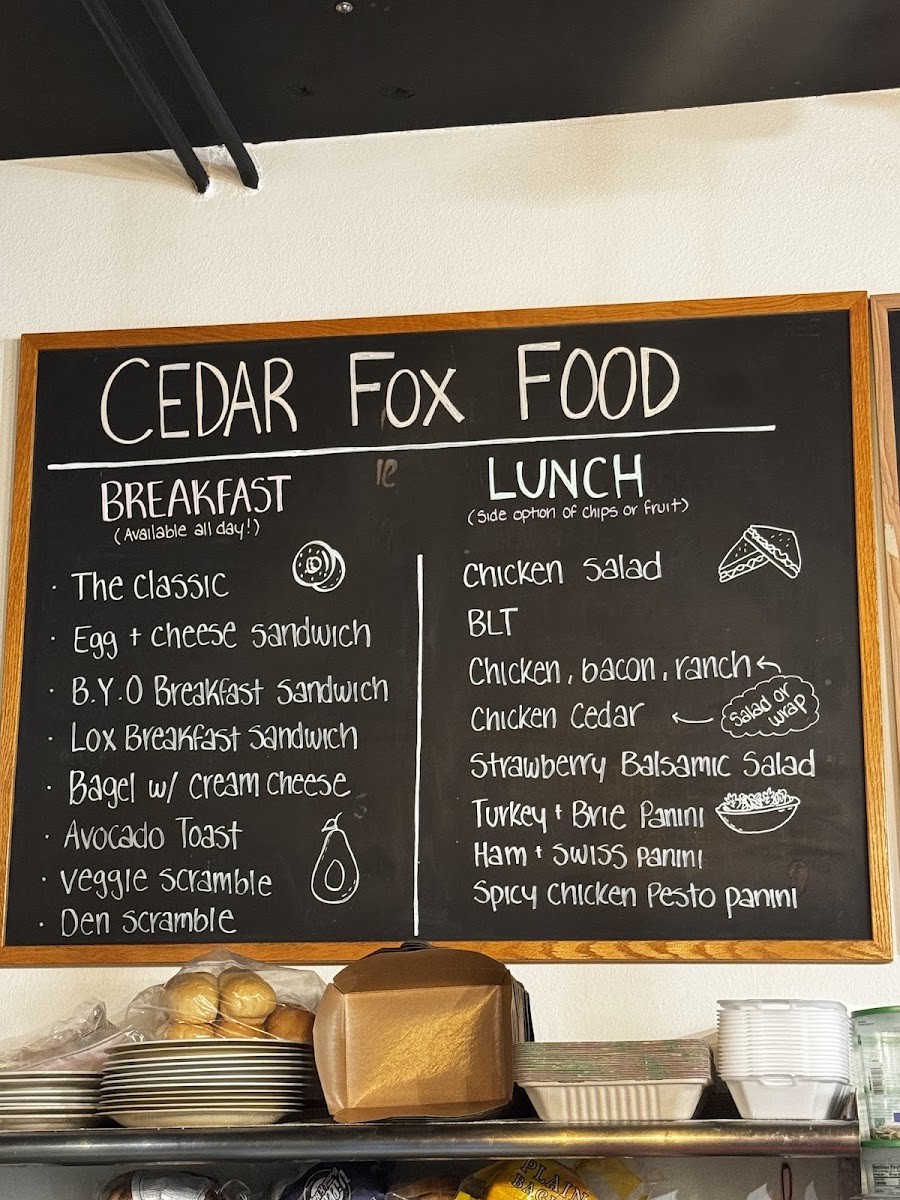 CEDAR FOX FOOD
BREAKFAST
(Available all day!)
· The Classic
· Egg + cheese sandwich
· B.Y.O Breakfast sandwich
· Lox Breakfast sandwich
· Bagel w/ cream cheese
· Avocado Toast
· veggie scramble
· Den scramble
LUNCH
(side option of chips or fruit)
Chicken salad
BLT
Chicken, bacon, ranch
Chicken Cedar
Salad or
wrap
Strawberry Balsamic Salad
Turkey + Brie Panini
Ham + SWISS panini
Spicy Chicken Pesto panini
PLAIN